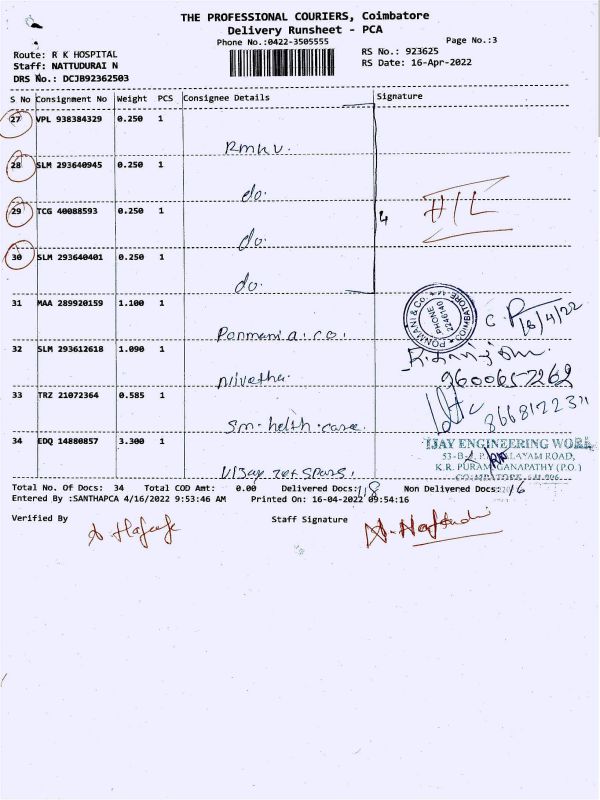 THE PROFESSIONAL COURIERS, Coimbatore
Delivery Runsheet - PCA
Phone No.:0422-3505555
Page No.:3
Route: R K HOSPITAL
RS No.: 923625
Staff: NATTUDURAI N
RS Date: 16-Apr-2022
DRS No.: DCJB92362503
S No Consignment No Weight PCS Consignee Details Signature
27 VPL 938384329 0.250 1
RMKV.
28 SLM 293640945 0.250 1
do.
29 TCG 40088593 0.250 1
do.
4 H/L
30 SLM 293640401 0.250 1
do.
31 MAA 289920159 1.100 1
PONMANI & CO. COIMBATORE PHONE 2246140
16/4/22
Ponmani a. co.
32 SLM 293612618 1.090 1
Nivetha.
9600657262
33 TRZ 21072364 0.585 1
Sm. helth. care.
34 EDQ 14880857 3.300 1
IJAY ENGINEERING WORK
ROAD,
K.R. PURAM, GANAPATHY (P.O.)
Vijay
Total No. Of Docs: 34 Total COD Amt: 0.00 Delivered Docs: 18 Non Delivered Docs: 16
Entered By :SANTHAPCA 4/16/2022 9:53:46 AM Printed On: 16-04-2022 09:54:16
Verified By Staff Signature